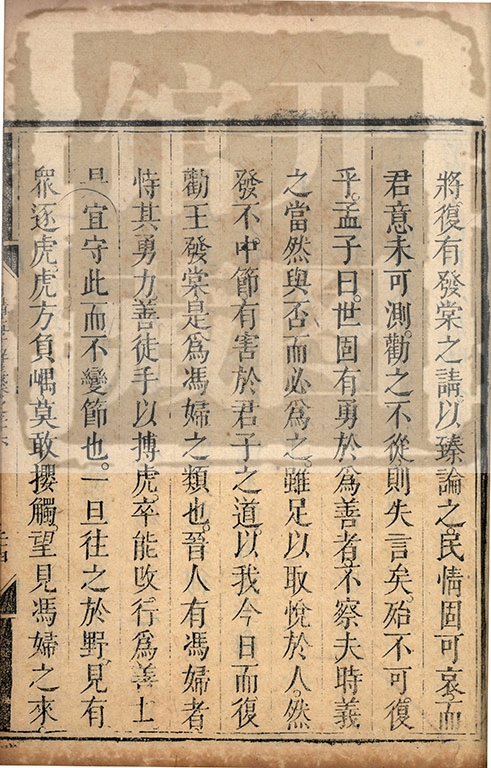 將復有發棠之請。以臻論之。民情固可哀而
君意未可測。勸之不從。則失言矣。殆不可復
乎。孟子曰。世固有勇於爲善者。不察夫時義
之當然與否而必爲之。雖足以取悅於人。然
發不中節有害於君子之道以我今日而復
勸王發棠是爲馮婦之類也。晉人有馮婦者
恃其勇力善徒手以搏虎。卒能改行爲善士
宜守此而不變節也。一旦往之於野。見有
眾逐虎。虎方負嵎莫敢攖觸。望見馮婦之來